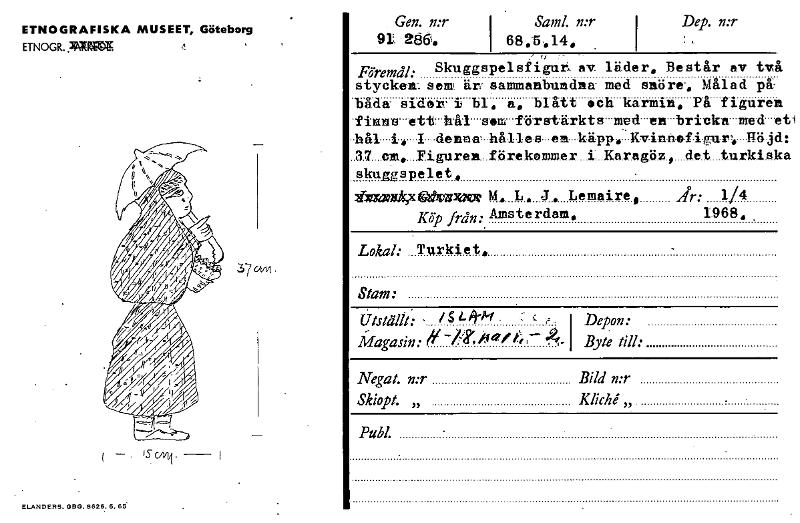 ETNOGRAFISKA MUSEET, Göteborg
ETNOGR.
37 cm.
15 cm.
ELANDERS, GBG. 8626. 5. 65
Gen. n:r Saml. n:r Dep. n:r
91 286. 68.5.14.
Föremål: Skuggspelsfigur av läder. Består av två
stycken som är sammanbundna med snöre. Målad på
båda sidor i bl. a. blått och karmin. På figuren
finns ett hål som förstärkts med en bricka med ett
hål i. I denna hålles en käpp. Kvinnofigur. Höjd:
37 cm. Figuren förekommer i Karagöz, det turkiska
skuggspelet.
M. L. J. Lemaire, År: 1/4
Köp från: Amsterdam. 1968.
Lokal: Turkiet.
Stam:
Utställt: ISLAM Depon:
Magasin: Byte till:
Negat. n:r Bild n:r
Skiopt. „ Kliché „
Publ.